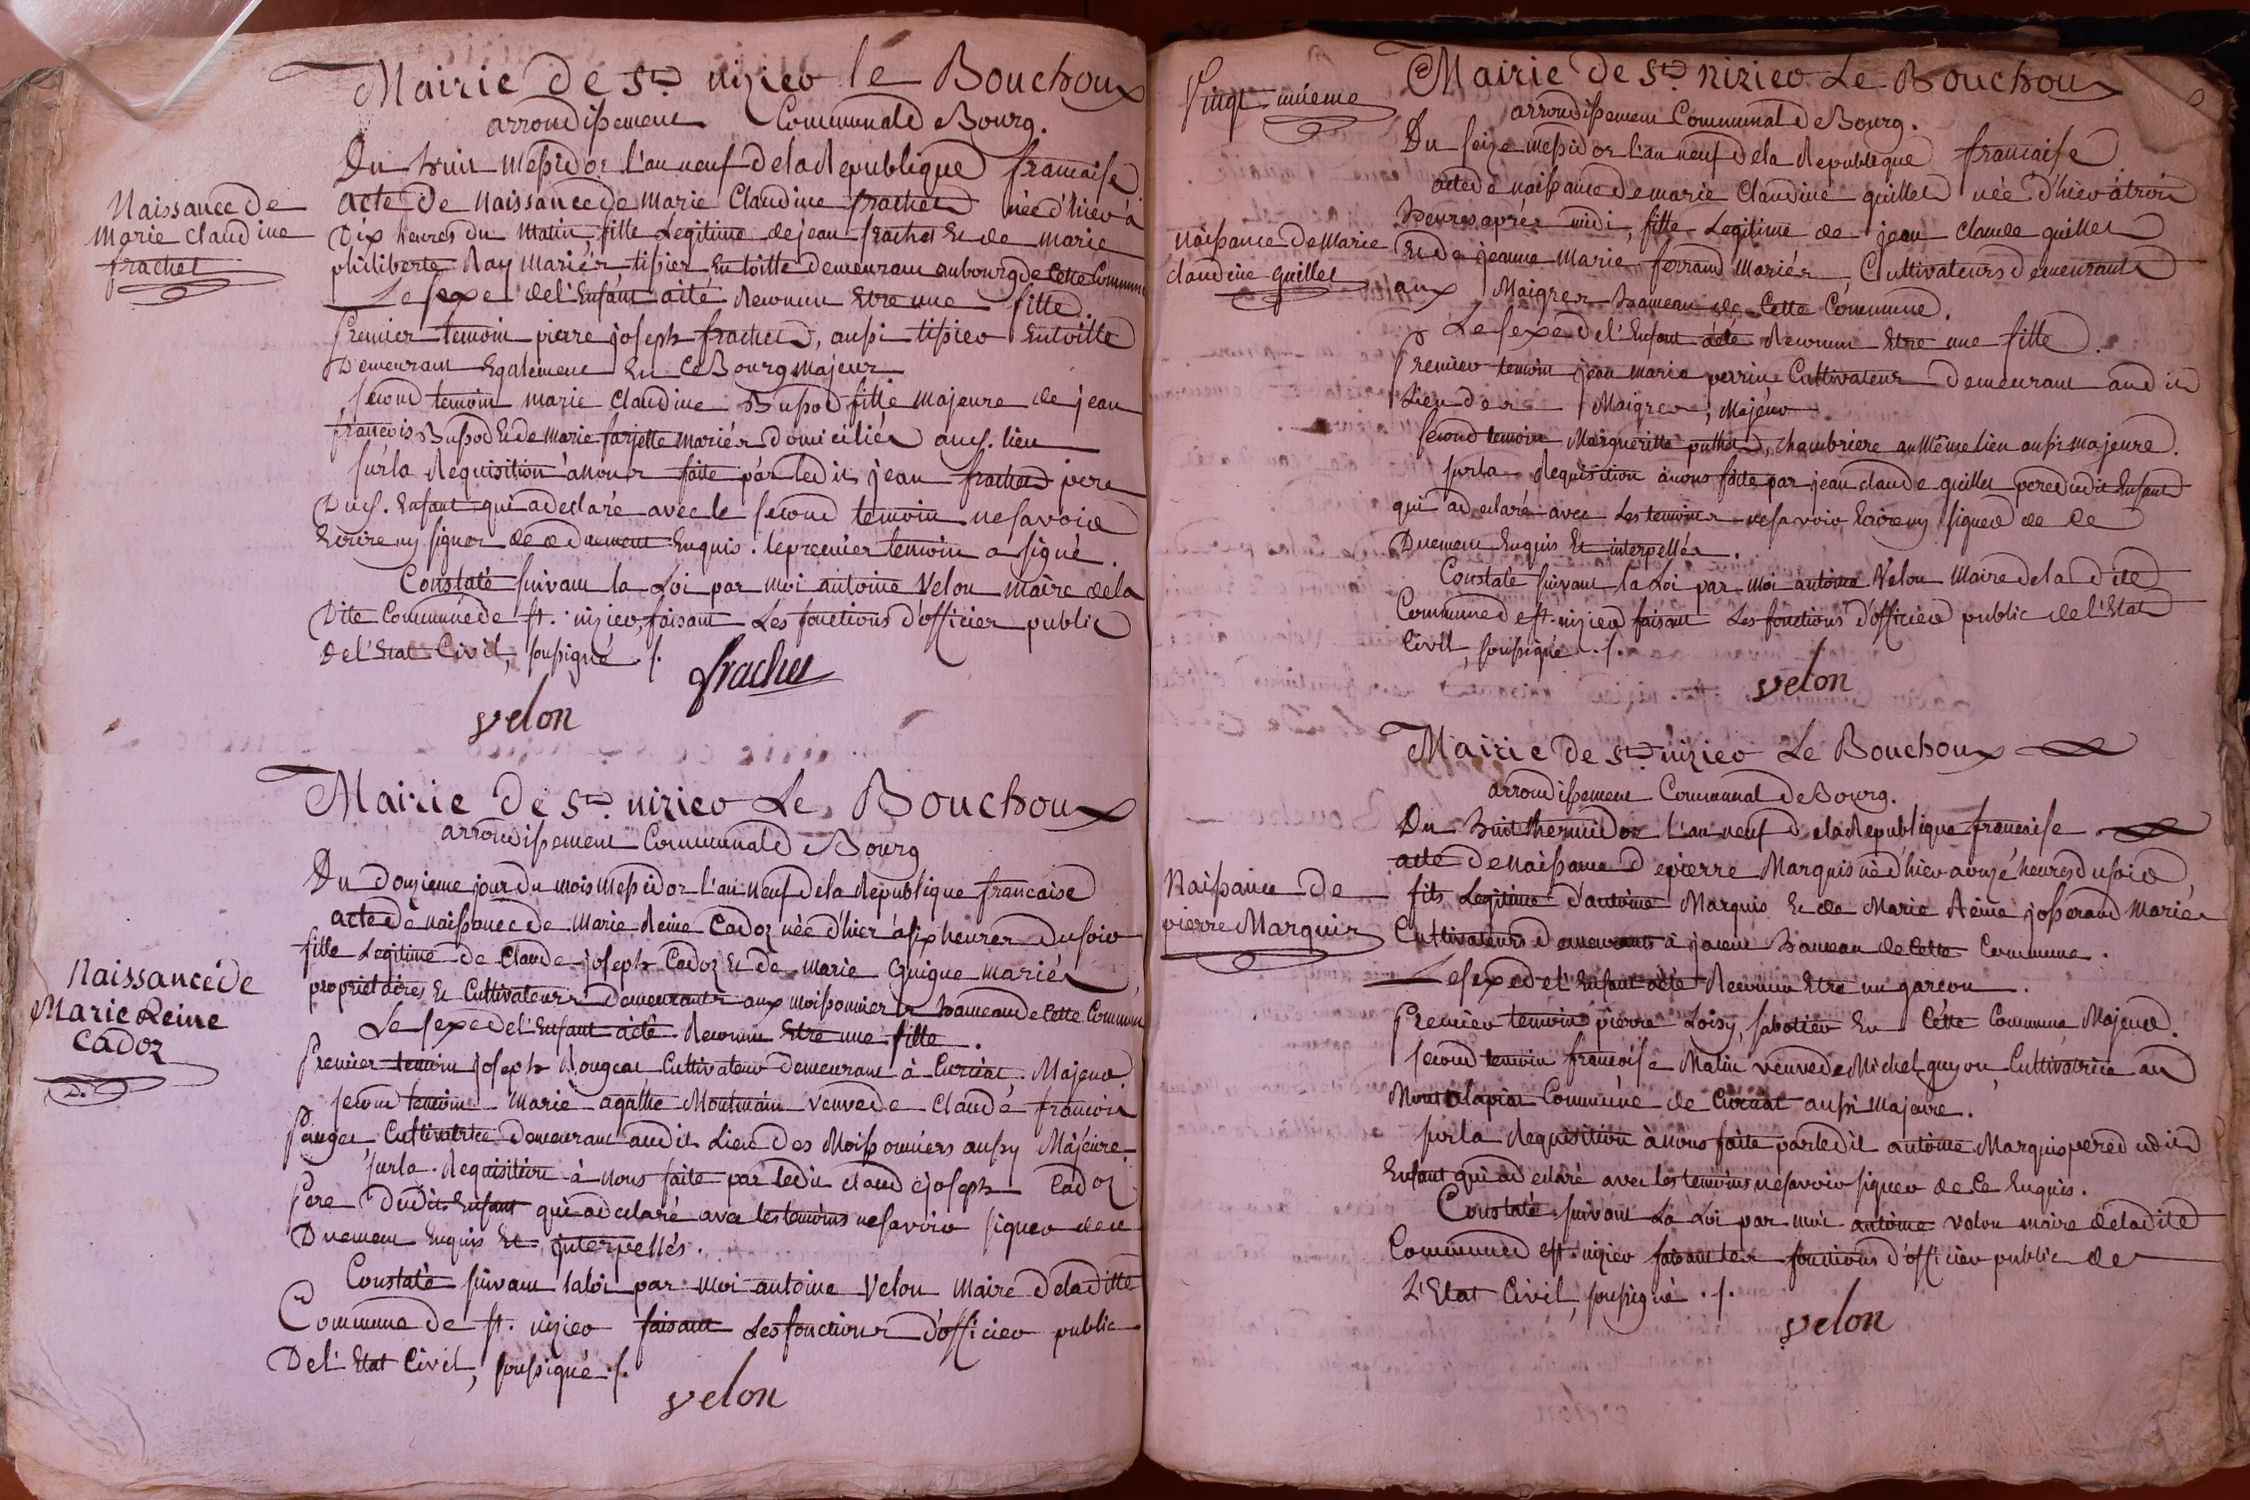 Mairie de St. nizier le Bouchoux
arrondissement Communal de Bourg.
Du huit Messidor l'an neuf de la Republique francaise
Naissance de
Marie claudine
frachet
acte de Naissance de Marie Claudine frachet née d'hier à
Dix heures du Matin, fille Legitime de jean frachet et de marie
philiberte Ray mariés tissier en toille demeurant au bourg de Cette Commune
Le sexe de l'Enfant a été Reconnu Etre une fille.
Premier temoin pierre joseph frachet, aussi tissier En toille
Demeurant Egalement En Ce Bourg majeur
second temoin marie Claudine Bussod fille majeure de jean
francois Bussod et de Marie farjette mariés domiciliés aud. lieu
sur la Requisition à nous faite par ledit jean frachet pere
Dud. Enfant qui a declaré avec le second temoin ne savoir
Ecrire ny signer de ce duement Enquis. le premier temoin a signé.
Constaté suivant la Loi par moi antoine Velon maire de la
Dite Commune de st. nizier, faisant Les fonctions d'officier public
de l'Etat Civil, soussigné ./.
frachet
velon
Mairie de St. nizier Le Bouchoux
arrondissement Communal de Bourg
Du douzieme jour du mois Messidor l'an neuf de la Republique francaise
Naissance de
Marie Reine
Cadoz
acte de naissance de Marie Reine Cadoz née d'hier à six heures du soir
fille Legitime de Claude joseph Cadoz et de marie Guigue mariés
proprietaires et Cultivateurs Demeurants aux moissonniers hameau de Cette Commune
Le sexe de l'Enfant a été Reconnu Etre une fille.
Premier temoin joseph Rougeat Cultivateur demeurant à Curciat, Majeur.
second temoin Marie agathe Montmain veuve de Claude francois
Panget, Cultivatrice demeurant audit Lieu des Moissonniers aussy Majeure.
sur la Requisition à nous faite par ledit claude joseph Cadoz
Pere Dudit Enfant qui a declaré avec les temoins ne savoir signer de ce
Duement Enquis Et interpellés.
Constaté suivant la loi par moi antoine Velon Maire de la ditte
Commune de st. nizier faisant Les fonctions d'officier public
De l'Etat Civil, soussigné ./.
velon
Vingt unieme
Mairie de St. nizier Le Bouchoux
arrondissement Communal de Bourg.
Du seize messidor l'an neuf de la Republique francaise
Naissance de Marie
claudine guillet
acte de naissance de marie Claudine guillet née d'hier à trois
heures aprés midi, fille Legitime de jean claude guillet
Et de jeanne Marie ferrand Mariés, Cultivateurs demeurants
aux Maigres hameau de Cette Commune.
Le sexe de l'Enfant a été Reconnu Etre une fille.
Premier temoin jean marie perrin Cultivateur Demeurant audit
Lieu des Maigres, Majeur
second temoin Margueritte puthet, chambriere au Même lieu aussi majeure.
sur la Requisition à nous faite par jean claude guillet pere dudit Enfant
qui a declaré avec Les temoins ne savoir Ecrire ny signer de ce
Duement Enquis Et interpellés.
Constaté suivant la Loi par moi antoine Velon Maire de la dite
Commune de st. nizier faisant Les fonctions d'officier public de l'Etat
Civil, soussigné ./.
velon
Mairie de St. nizier Le Bouchoux
arrondissement Communal de Bourg.
Du huit thermidor l'an neuf de la Republique francaise
Naissance de
pierre Marquis
acte de Naissance de pierre Marquis né d'hier a onze heures du soir,
fils Legitime d'antoine Marquis Et de Marie Reine josserand Mariés
Cultivateurs demeurants à hameau de Cette Commune.
Le sexe de l'Enfant a été Reconnu Etre un garcon.
Premier temoin pierre Loisy, sabotier En Cette Commune Majeur.
second temoin francoise Malin veuve de Michel guyon, Cultivatrice au
Mont Commune de Curciat aussi majeure.
sur la Requisition à nous faite par ledit antoine Marquis pere dudit
Enfant qui a declaré avec les temoins ne savoir signer de Ce Enquis.
Constaté suivant La Loi par moi antoine velon maire de la dite
Commune de st. nizier faisant les fonctions d'officier public de
L'Etat Civil, soussigné ./.
velon